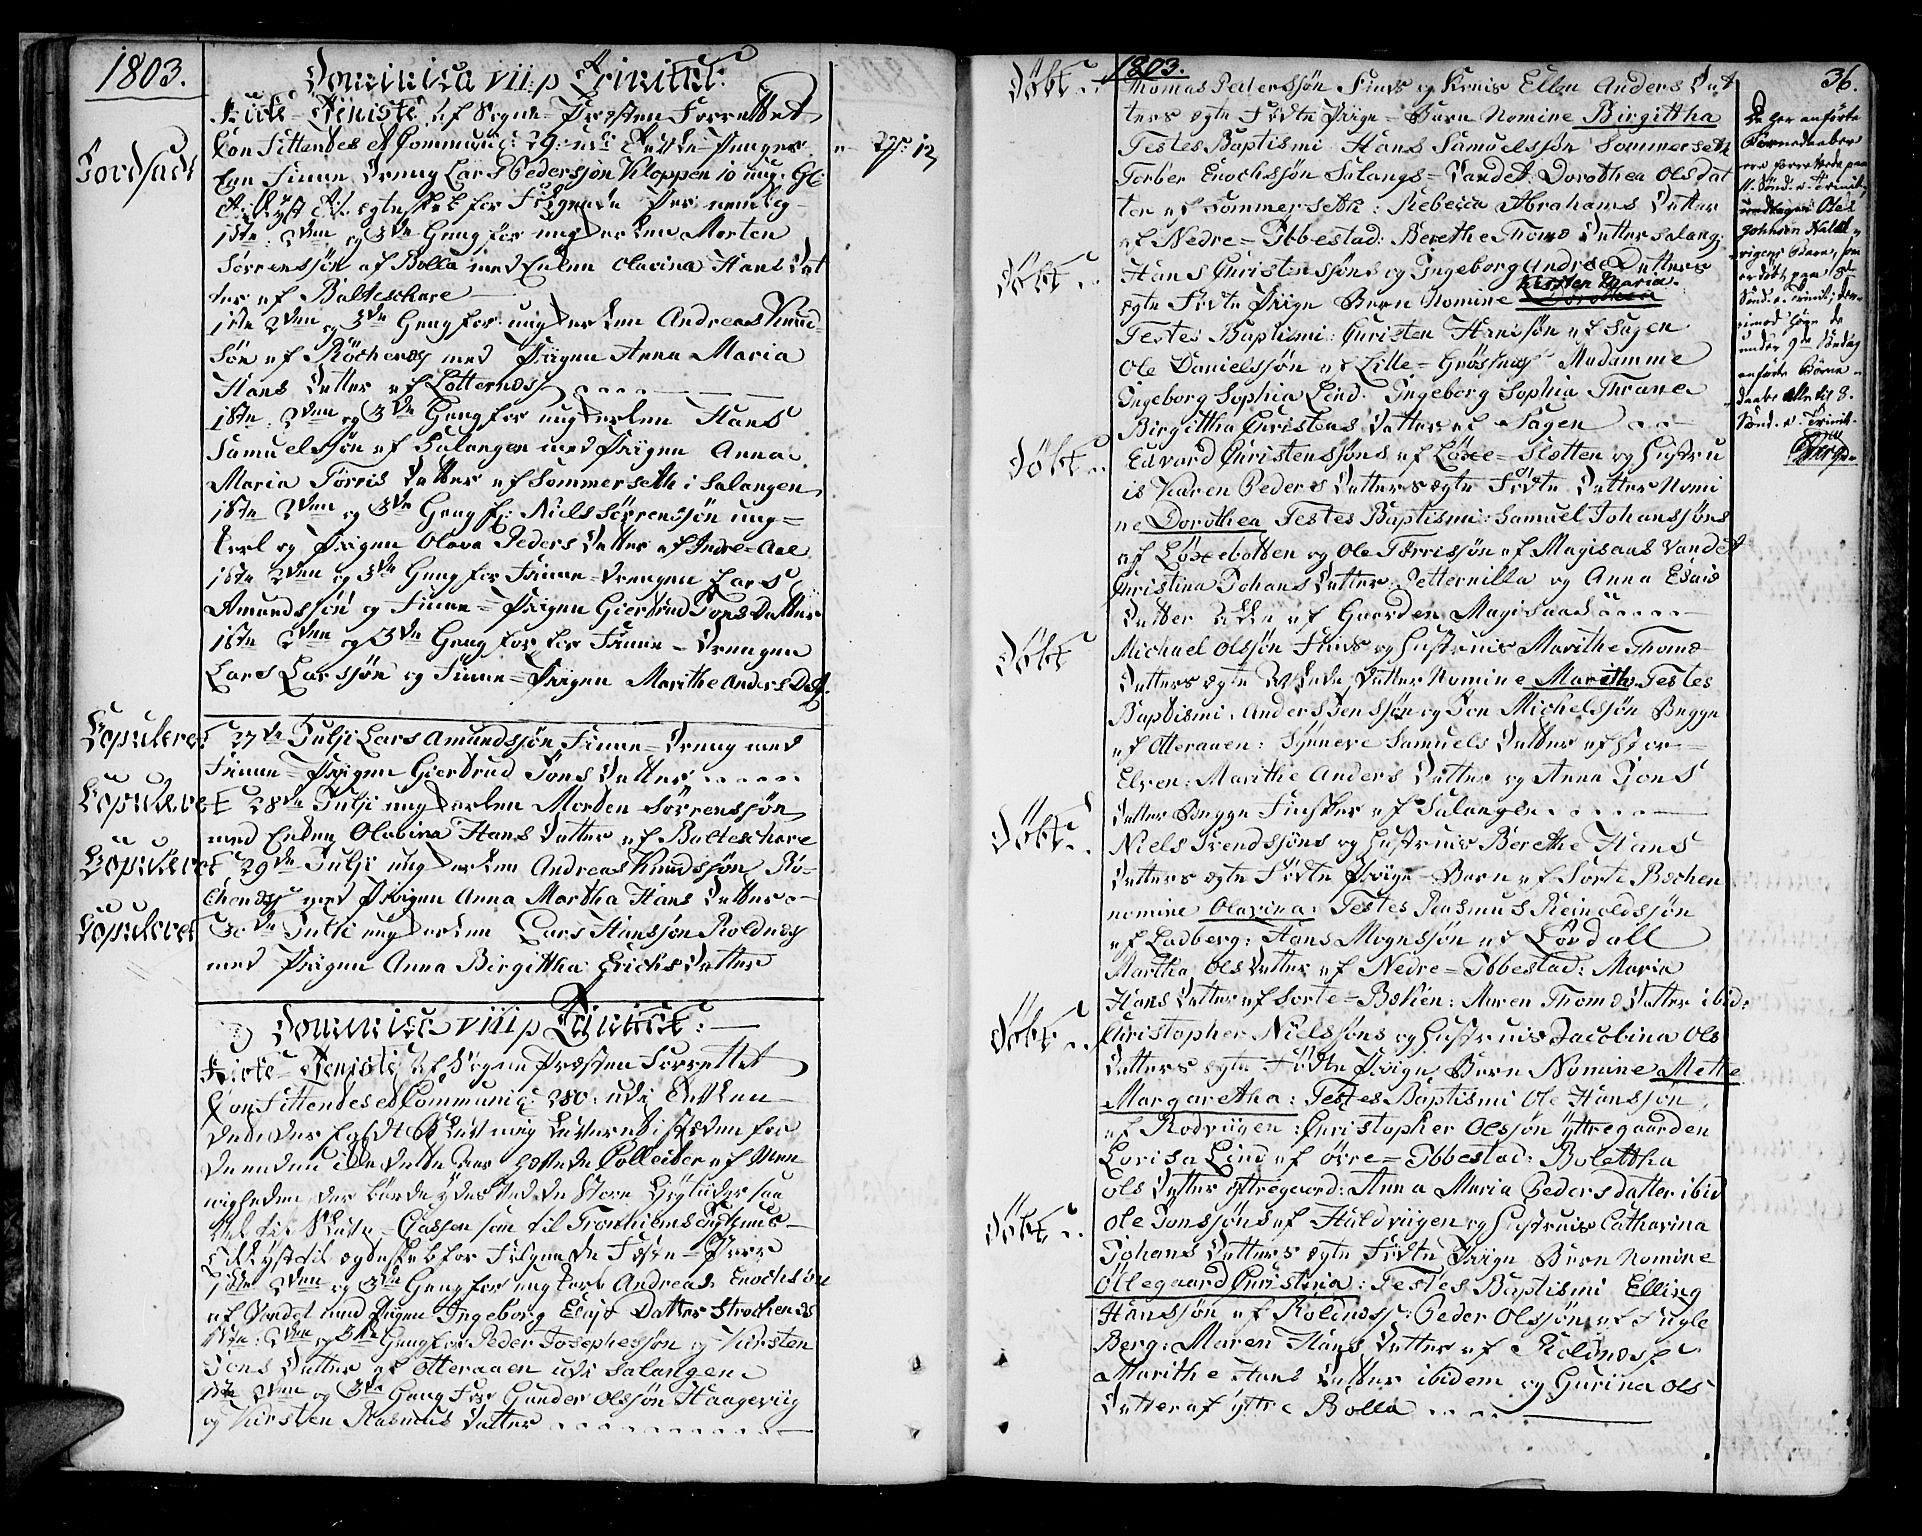 1803.
Dominica VII p Trinitat:
Kirke-Tieniste af Sogne-Præsten Forrettet
Confittendes et Communic: 29: udi Tavle-Penger
Jordsadt
Een Finne-Dreng Lars Pedersøn Kloppen 10 Aug. Gl:
Lyst til Ægteskab for Følgende Par nemlig
1ste 2den og 3die Gang for ungkarlen Morten
Sørrensøn af Bolla med Enken Olavina Hans Dat
ter af Balteschare
1ste 2den og 3die Gang for ungkarlen Andreas Knud-
søn af Röchenæs med Pigen Anna Maria
Hans Datter af Lotternæs
1ste 2den og 3die Gang for ungkarlen Hans
Samuelsøn af Salangen med Pigen Anna
Maria Törris Datter af Sommerseth i Salangen
1ste 2den og 3die Gang f: Niels Sörrensøn ung-
karl og Pigen Olava Peders Datter af Indre-Aae
1ste 2den og 3die Gang for Finne-Drengen Lars
Amundsøn og Finne-Pigen Giertrud Jons Datter
1ste 2den og 3die Gang for Finne-Drengen
Lars Larssøn og Finne-Pigen Marithe Anders Dat.
Copuleret 27de Julji Lars Amundsøn Finne-Dreng med
Finne-Pigen Giertrud Jons Datter
Copuleret 28de Julji ungkarlen Morten Sörrensøn
med Enken Olabina Hans Datter af Balteschare
Copuleret 29de Julji ungkarlen Andreas Knudsøn Rö-
chenæs med Pigen Anna Martha Hans Datter
Copuleret 30de Julji ungkarlen Lars Hansøn Roldnæs
med Pigen Anna Birgittha Erichs Datter
Dominica VIII p Trinitat:
Kirke-Tieniste af Sogne Præsten Forrettet
Confittendes et Communic: 280: udi
Collecter af Men
nigheden der burde ydes ved de Store Høytider saa
vel til Skole-Cassen som til Tronhiems Sygehuus
Lyst til Ægteskab for Følgende Første-Par
1ste 2den og 3die Gang for ungkarl Andreas Enochsøn
af Vandet med Pigen Ingeborg Elias Datter Strochenæs
1ste 2den og 3die Gang for Peder Josephssøn og Kirsten
Jons Datter af Otteraaen udi Salangen
1ste 2den og 3die Gang For Gunder Olssøn Haagevig
og Kirsten Rasmus Datter
1803.
36.
Döbt Thomas Pedersøn Finds og Konis Ellen Anders Dat
ters ægte Födte Pige-Barn Nomine Birgittha
Testes Baptismi: Hans Samuelsøn Sommerseth
Torber Enochssøn Salangs-Vandet: Dorothea Olsdat
ter af Sommerseth: Rebecca Abrahams Datter
af Nedre-Ibbestad: Berethe Thomæ Datter Salang:
Döbt Hans Christensøns og Ingeborg Andreæ Datters
ægte Födte Pige Barn Nomine Kirsten Maria.
Testes Baptismi: Christen Hansøn af Sagen
Ole Danielssøn af Lille-Grösnes Madamme
Ingeborg Sophia Lind: Ingeborg Sophia Thrane
Birgittha Christens Datter af Sagen
Döbt Edvard Christenssøns af Löxe-Sletten og Hustru
is Karen Peders Datters ægte Födte Datter Nomi
ne Dorothea Testes Baptismi: Samuel Johanssøns
af Löxebotten og Ole Törrissøn af Magisaas Vandet
Christina Johans Datter: Petternilla og Anna Esais
Datter af Gaarden Magisaas
Döbt Michael Olssøn Finds og Hustruis Marithe Thomæ
Datters ægte Datter Nomine Marithe Testes
Baptismi, Anders Jenssøn og Jon Michelsøn Begge
af Otteraaen: Synnere Samuels Datter af
Elven: Marithe Anders Datter og Anna Jons
Datter Begge Finsker af Salangen
Döbt Niels Trendssøns og Hustruis Berethe Hans
Datters ægte Födte Pige-Barn af Sorte Bochen
nomine Olavina: Testes Rasmus Reinoldssøn
af Ladberg: Hans Mognssøn af Lördall
Martha Ols Datter af Nedre-Ibbestad: Maria
Hans Datter af Sorte-Bocken: Maren Thomæ Datter ibid:
Döbt Christopher Nielssøns og Hustruis Jacobina Ols
Datters ægte Födte Pige Barn Nomine Mette
Margaretha: Testes Baptismi Ole Hansøn
af Rodviigen: Christopher Olssøn Yttregaarden
Lovisa Lind af Övre-Ibbestad: Bolettha
Ols Datter Yttregaard: Anna Maria Pedersdatter ibid
Döbt Ole Jonssøns af Haldviigen og Hustruis Catharina
Johans Datters ægte Födte Pige Barn Nomine
Ollegaard Christina: Testes Baptismi Elling
Hanssøn af Roldnæs: Peder Olssøn af Fugle
Berg: Maren Hans Datter af Roldnæs
Marithe Hans Datter ibidem og Gurina Ols
Datter af Yttre Bolla
De her anførte
Børnedaaber
ere forrettede paa
11. Sönd. e. Trinit,
undtagen Ole
Johnsen Hald-
vigens Barn, som
er döbt paa 8de
Sönd. e. Trinit; der-
imod høre de
under 9de Söndag
anførte Börne-
daabe alle til 8.
Sönd. e. Trinit.